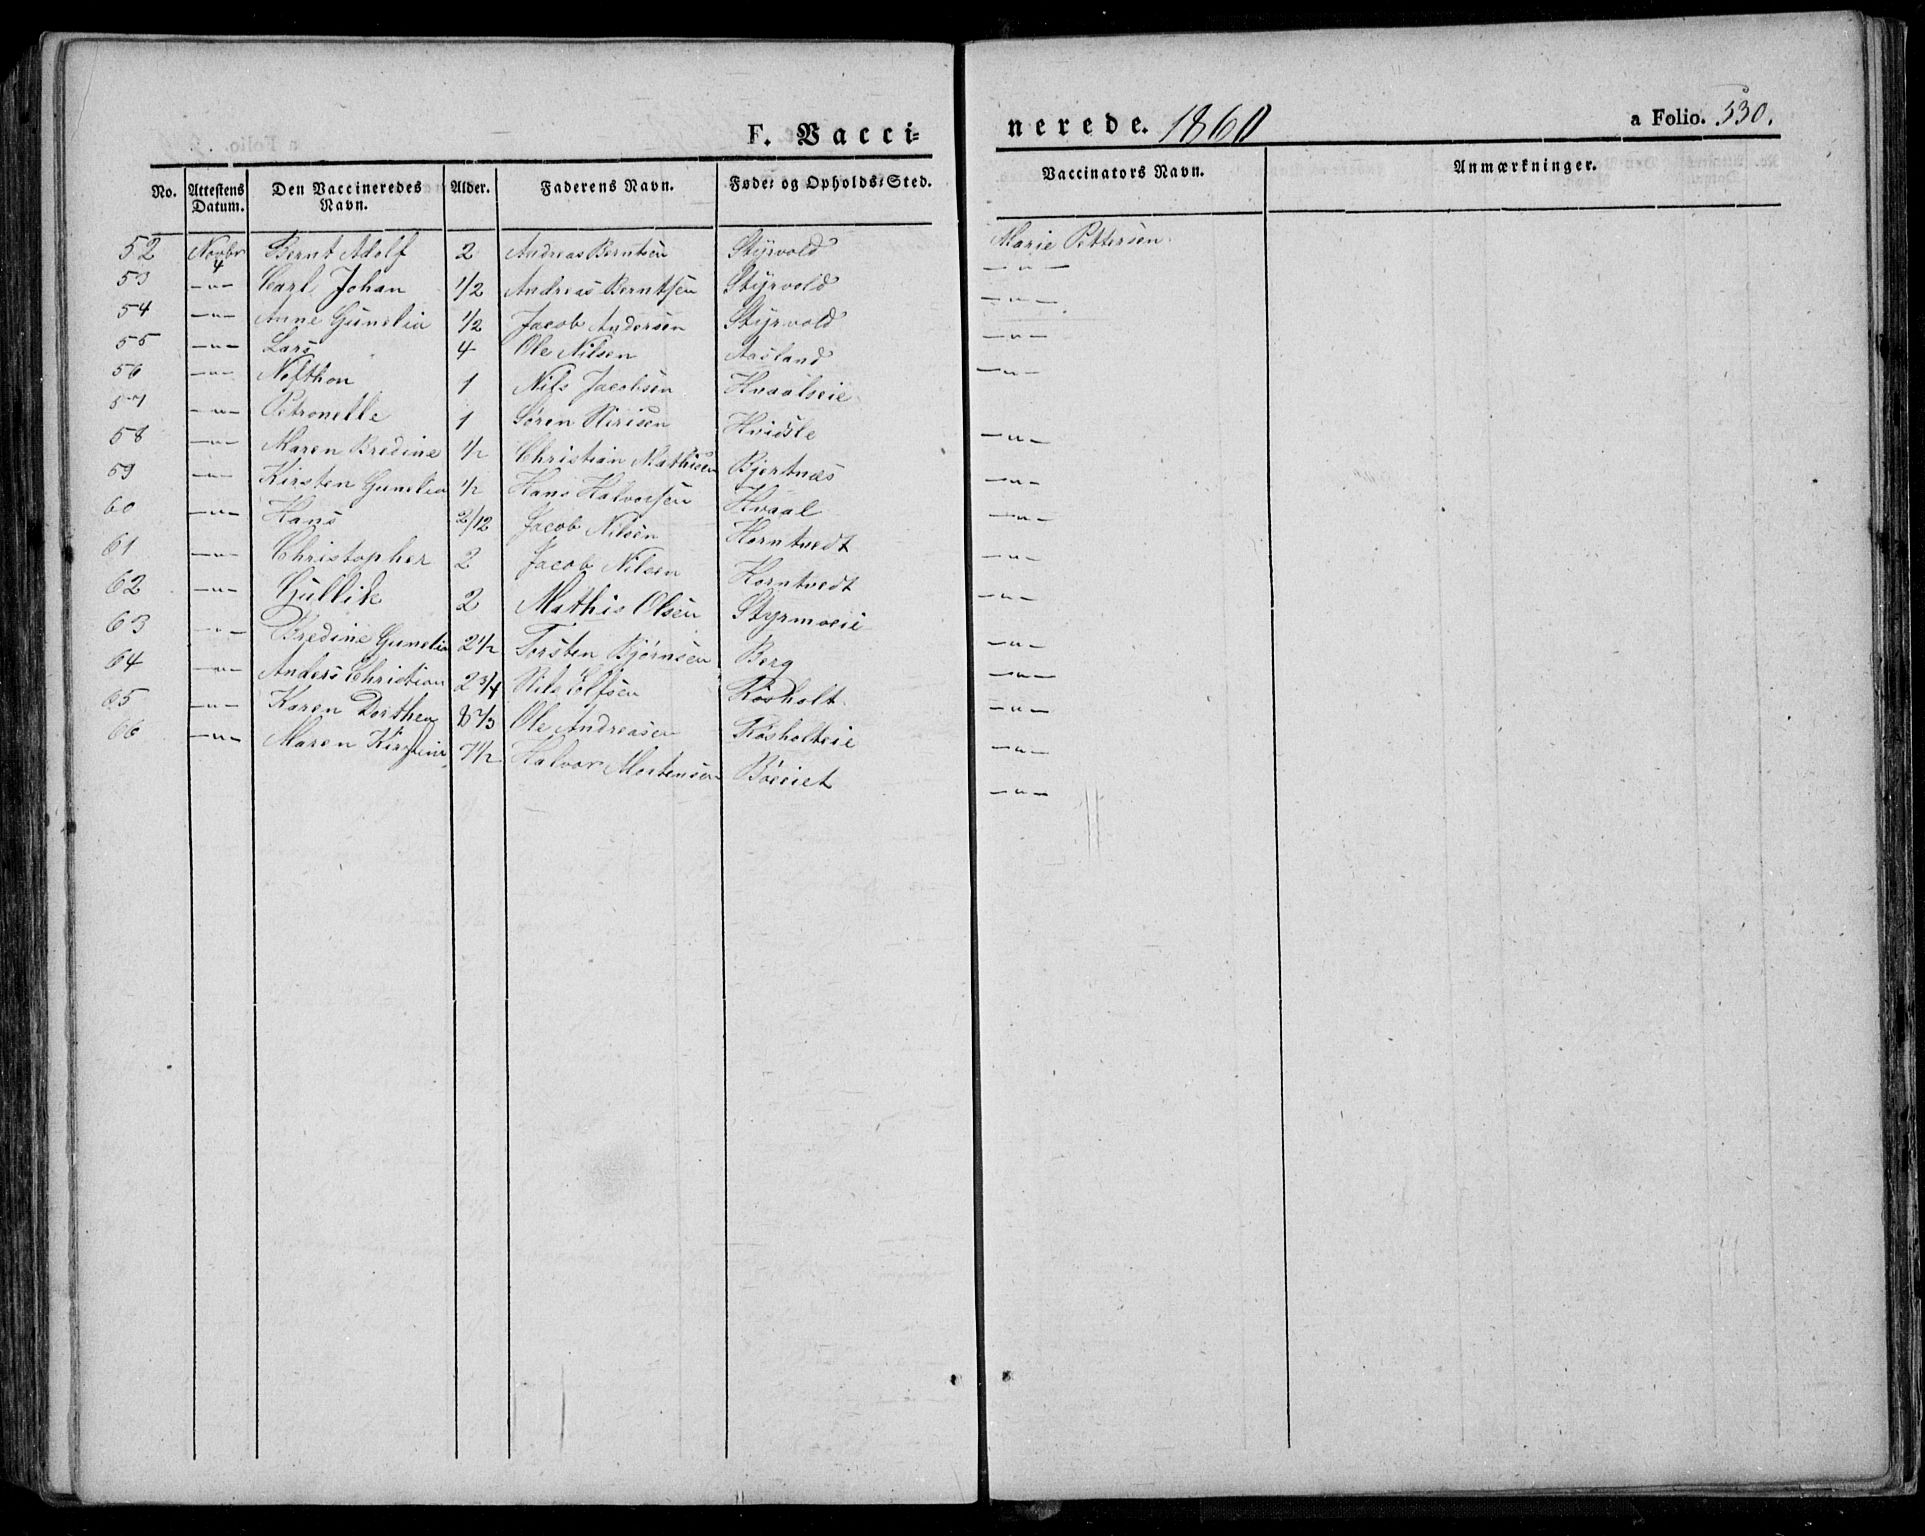 F. Vaccinerede. 1860 a Folio. 330.
No. Attestens Datum. Den Vaccineredes Navn. Alder. Faderens Navn. Føde- og Opholds-Sted. Vaccinators Navn. Anmærkninger.
52 Novbr 4 Bernt Adolf 2 Andreas Berntsen Styrvold Marie Pettersen
53 —"— Carl Johan 1/2 Andreas Berntsen Styrvold —"—
54 —"— Anne Gunelia 1/2 Jacob Andersen Styrvold —"—
55 —"— Lars 4 Ole Nilsen Aasland —"—
56 —"— Nefthon 1 Nils Jacobsen Hvaalseie —"—
57 —"— Petronelle 1 Søren Hvidsle
58 —"— Maren Bredine 1/2 Christian Mathisen Bjertnæs —"—
59 —"— Kirsten Gunelia 1/2 Hans Halvorsen Hvaal —"—
60 —"— Hans 2/12 Jacob Nilsen Horntvedt —"—
61 —"— Christopher 2 Jacob Nilsen Horntvedt —"—
62 —"— Gullik 2 Mathis Olsen Styrmoeie —"—
63 —"— Bredine Gunelia 2 1/2 Torsten Bjørnsen Berg —"—
64 —"— Anders Christian 2 3/4 Nils Olfsen Røsholt —"—
65 —"— Karen Dorthea Ole Andreasen Røsholteie —"—
66 —"— Maren Kirstine 7 1/2 Halvor Mortensen Bøeeiet —"—
—"—